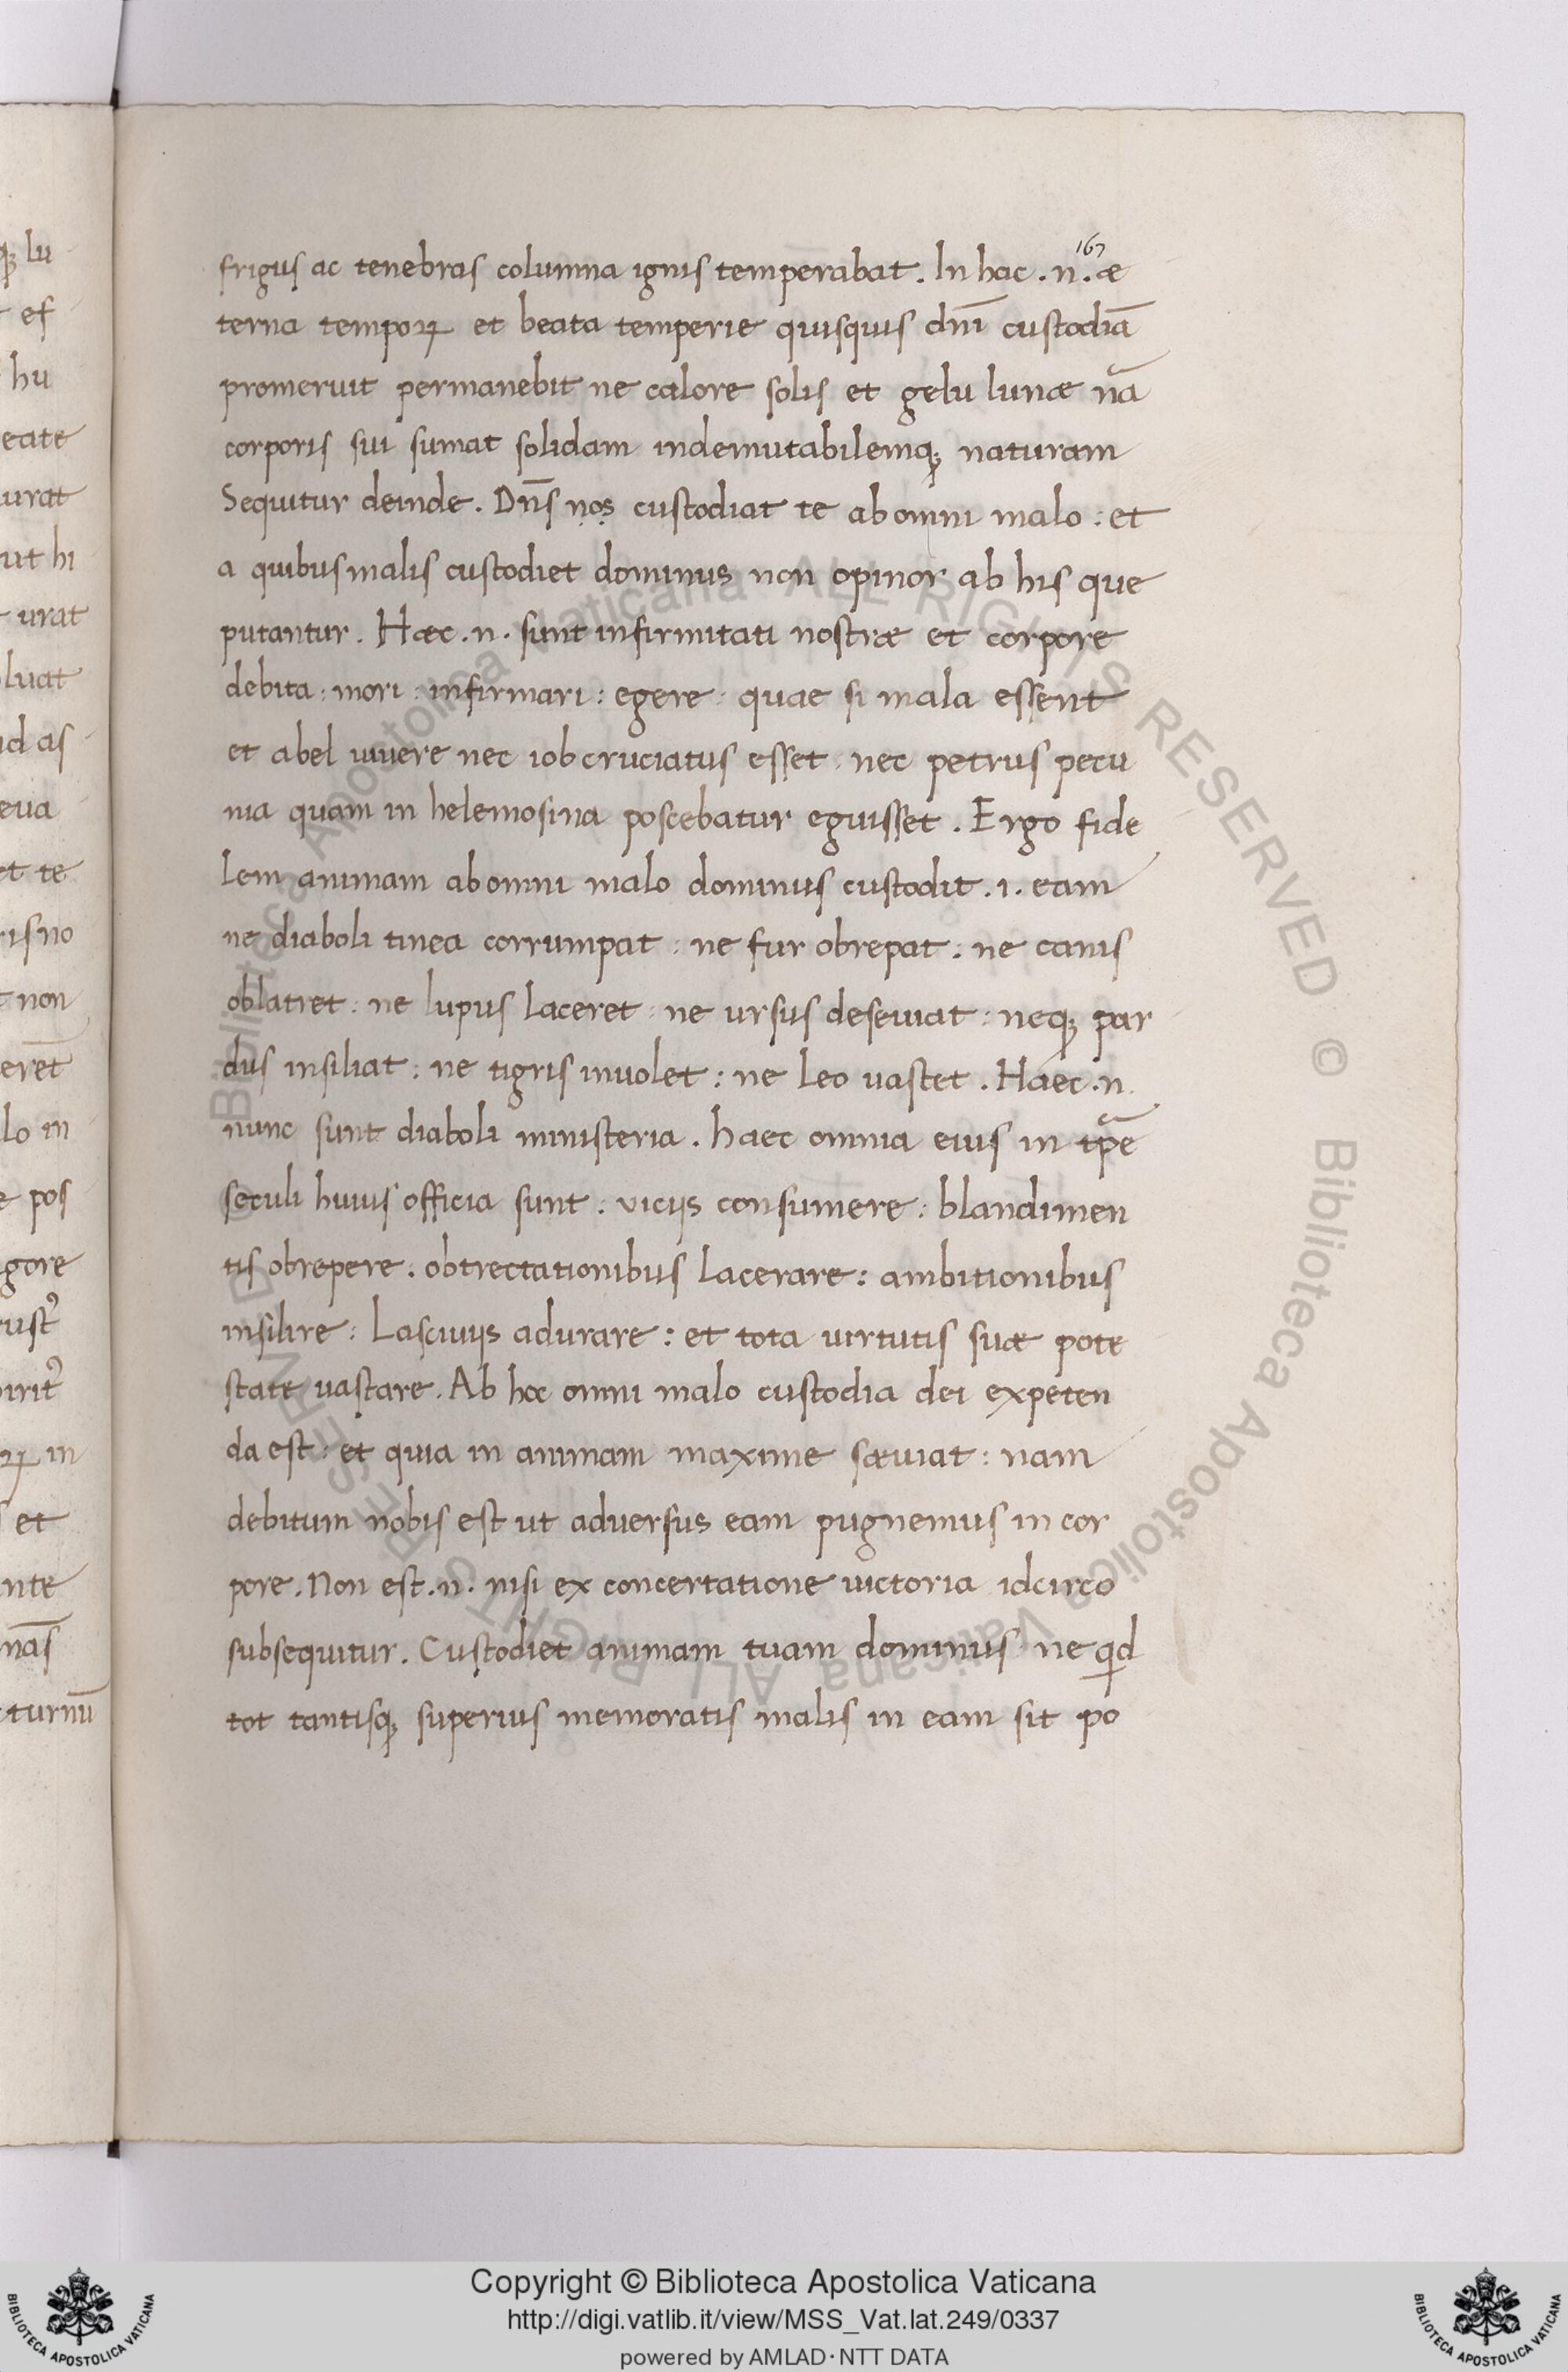 167
frigus ac tenebras columna ignis temperabat. In hac .n. æ
terna temporꝝ et beata temperie quisquis dn̄i custodiā
promeruit permanebit ne calore solis et gelu lunæ nā
corporis sui sumat solidam indemutabilemqꝫ naturam
Sequitur deinde. Dn̄s nos custodiat te ab omni malo : et
a quibus malis custodiet dominus non opinor ab his que
putantur. Hæc .n. sunt infirmitati nostræ et corpore
debita : mori : infirmari : egere : quae si mala essent
et abel uiuere nec iob cruciatus esset : nec petrus pecu
nia quam in helemosina poscebatur eguisset. Ergo fide
lem animam ab omni malo dominus custodit .i. eam
ne diaboli tinea corrumpat : ne fur obrepat : ne canis
oblatret : ne lupus laceret : ne ursus deseuiat : neqꝫ par
dus insiliat : ne tigris inuolet : ne leo vastet. Haec .n.
nunc sunt diaboli ministeria. haec omnia eius in tp̄e
seculi huius officia sunt : viciis consumere : blandimen
tis obrepere. obtrectationibus lacerare : ambitionibus
insilire : lasciuiis adurare : et tota uirtutis suæ pote
state vastare. Ab hoc omni malo custodia dei expeten
da est : et quia in animam maxime sæuiat : nam
debitum nobis est ut aduersus eam pugnemus in cor
pore. Non est .n. nisi ex concertatione uictoria idcirco
subsequitur. Custodiet animam tuam dominus ne qid
tot tantisqꝫ superius memoratis malis in eam sit po
qꝫ lu
ef
hu
eate
urat
ut hi
urat
luat
id as
eua
et te
ris no
non
erēt
lo in
pos
gore
irit᾽
ꝝ in
et
nte
nās
turnū
Biblioteca Apostolica Vaticana ALL RIGHTS RESERVED © Biblioteca Apostolica Vaticana ALL RIGHTS RESERVED ©
Copyright © Biblioteca Apostolica Vaticana
http://digi.vatlib.it/view/MSS_Vat.lat.249/0337
powered by AMLAD·NTT DATA
BIBLIOTECA APOSTOLICA VATICANA
BIBLIOTECA APOSTOLICA VATICANA